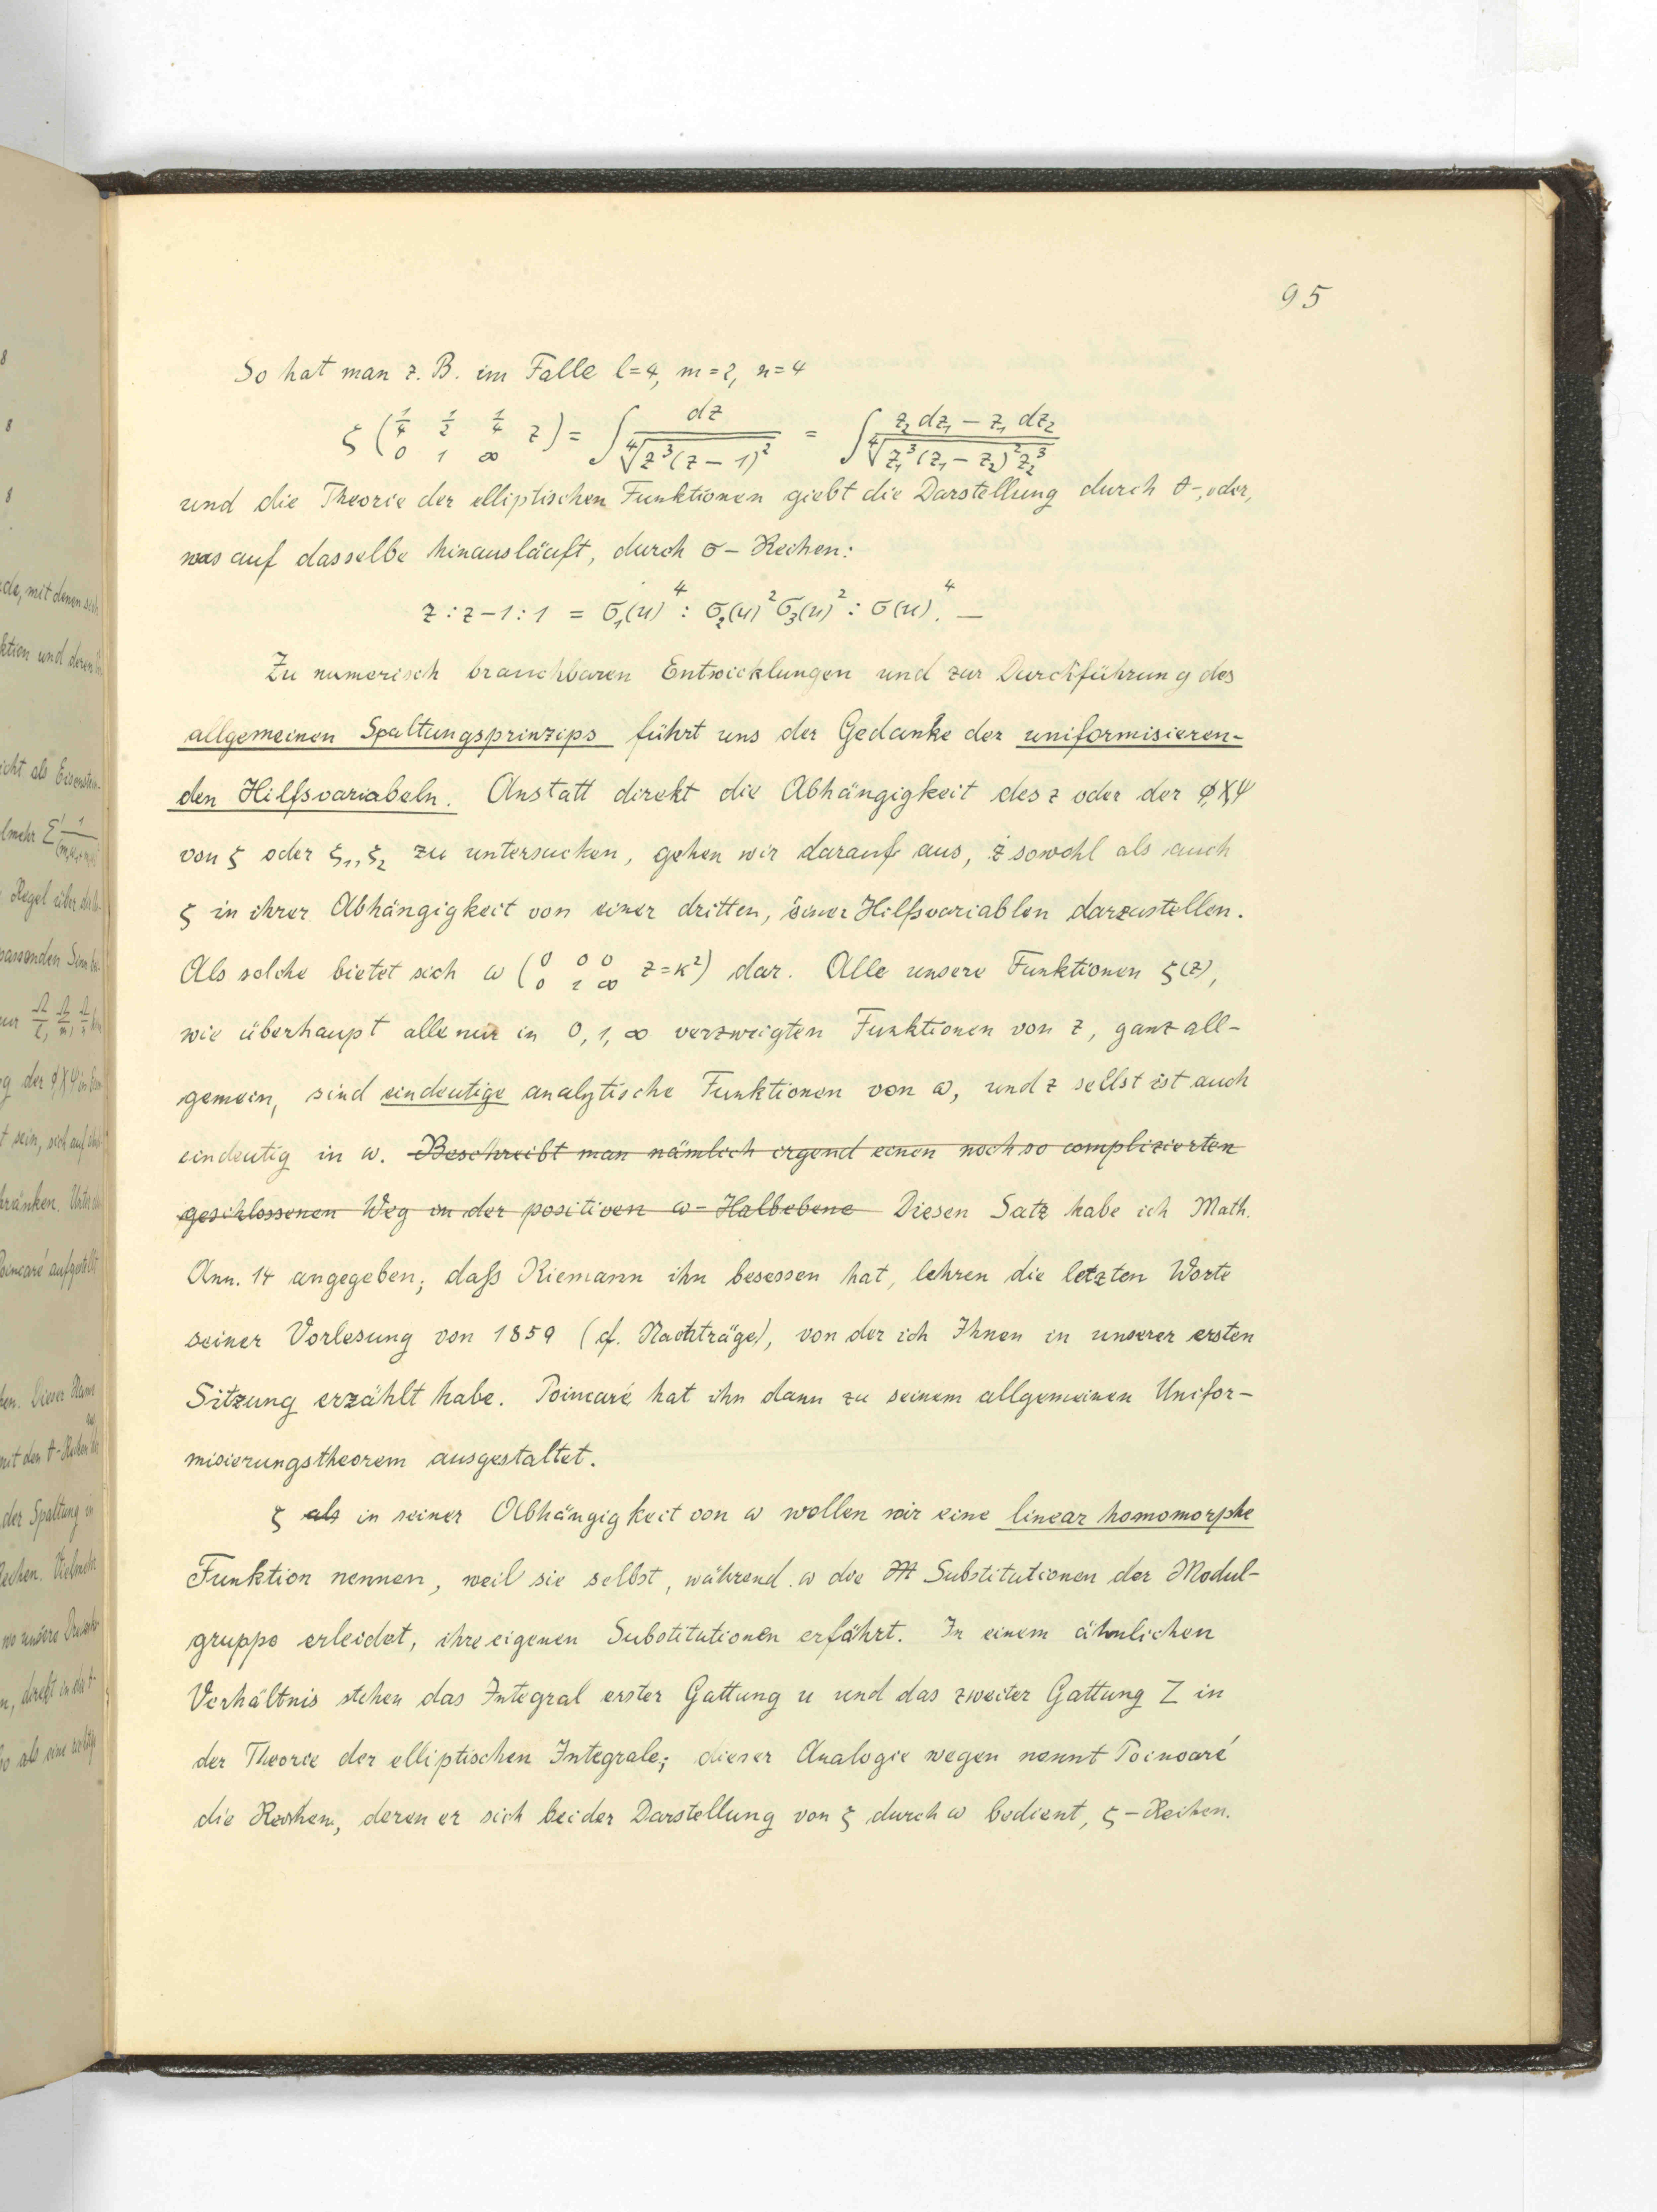 95
So hat man z. B. im Falle l=4, m=2, n=4
ζ (1/4 1/2 1/4 z / 0 1 ∞) = ∫ dz / ∜(z³(z−1)²) = ∫ (z₂dz₁ − z₁dz₂) / ∜(z₁³(z₁−z₂)²z₂³)
und die Theorie der elliptischen Funktionen giebt die Darstellung durch ϑ-, oder,
was auf dasselbe hinausläuft, durch σ-Reihen:
z : z−1 : 1 = σ₁(u)⁴ : σ₂(u)²σ₃(u)² : σ(u)⁴. —
Zu numerisch brauchbaren Entwicklungen und zur Durchführung des
allgemeinen Spaltungsprinzips führt uns der Gedanke der uniformisieren-
den Hilfsvariabeln. Anstatt direkt die Abhängigkeit des z oder der φ,χ,ψ
von ζ oder ζ₁,ζ₂ zu untersuchen, gehen wir darauf aus, z sowohl als auch
ζ in ihrer Abhängigkeit von einer dritten, einer Hilfsvariablen darzustellen.
Als solche bietet sich ω (0 0 0 / 0 1 ∞ z=κ²) dar. Alle unsere Funktionen ζ(z),
wie überhaupt alle nur in 0, 1, ∞ verzweigten Funktionen von z, ganz all-
gemein, sind eindeutige analytische Funktionen von ω, und z selbst ist auch
eindeutig in ω. Beschreibt man nämlich irgend einen noch so complizierten
geschlossenen Weg in der positiven ω-Halbebene Diesen Satz habe ich Math.
Ann. 14 angegeben; daß Riemann ihn besessen hat, lehren die letzten Worte
seiner Vorlesung von 1859 (cf. Nachträge), von der ich Ihnen in unserer ersten
Sitzung erzählt habe. Poincaré hat ihn dann zu seinem allgemeinen Unifor-
misierungstheorem ausgestaltet.
ζ als in seiner Abhängigkeit von ω wollen wir eine linear homomorphe
Funktion nennen, weil sie selbst, während ω die M Substitutionen der Modul-
gruppe erleidet, ihre eigenen Substitutionen erfährt. In einem ähnlichen
Verhältnis stehen das Integral erster Gattung u und das zweiter Gattung Z in
der Theorie der elliptischen Integrale; dieser Analogie wegen nennt Poincaré
die Reihen, deren er sich bei der Darstellung von ζ durch ω bedient, ζ-Reihen.